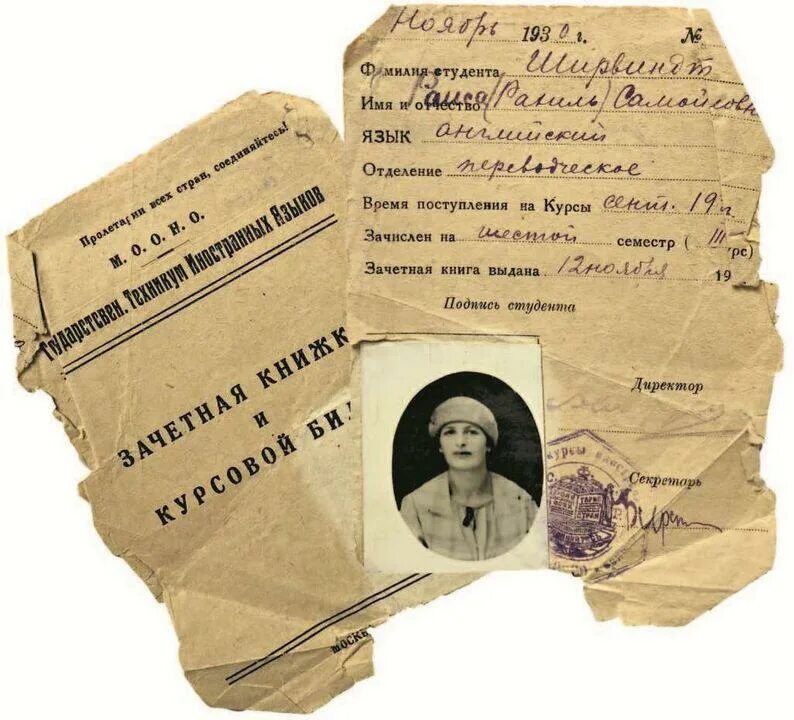 Пролетарии всех стран, соединяйтесь!
М. О. О. Н. О.
Государствен. Техникум Иностранных Языков
ЗАЧЕТНАЯ КНИЖК
и
КУРСОВОЙ БИЛ
МОСКВ
Ноябрь 1930 г. №
Фамилия студента Ширвиндт
Имя и отчество Раиса (Рахиль) Самойловн
ЯЗЫК английский
Отделение переводческое
Время поступления на Курсы сент. 19 г
Зачислен на шестой семестр ( III рс)
Зачетная книга выдана 12 ноября 19
Подпись студента
Директор
Секретарь